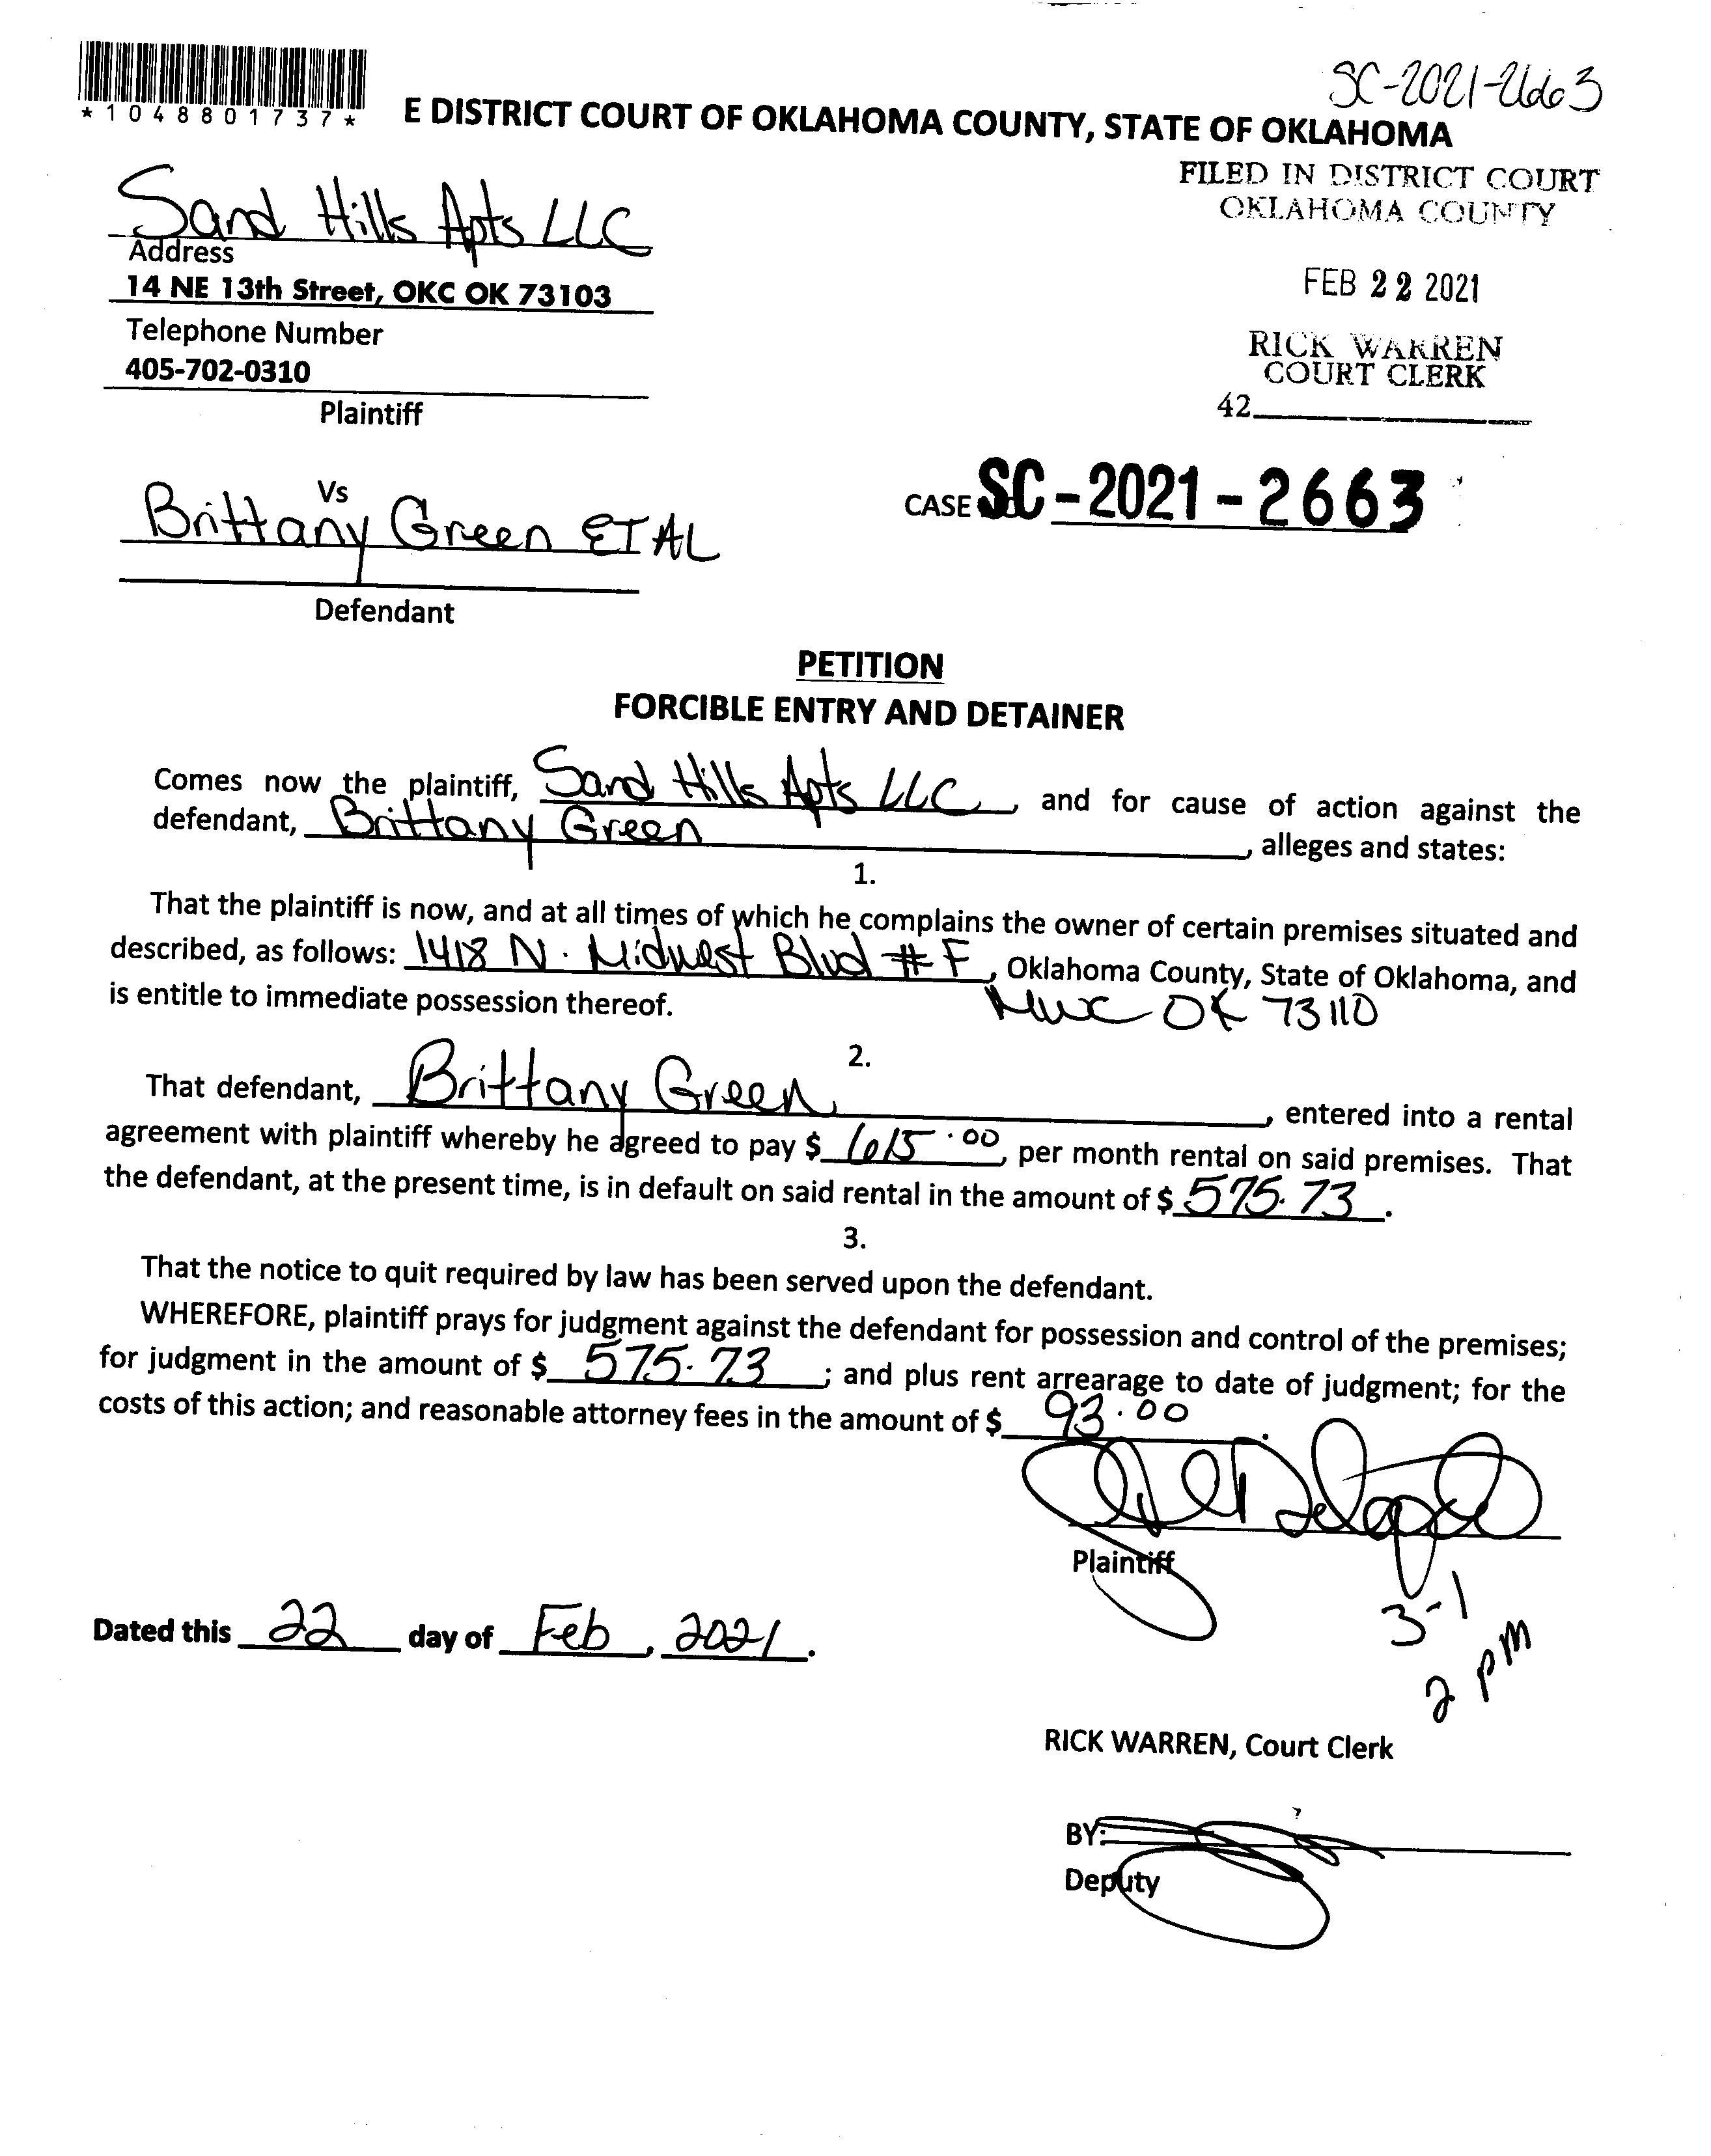 SC-2021-2663
*1048801737*
E DISTRICT COURT OF OKLAHOMA COUNTY, STATE OF OKLAHOMA
FILED IN DISTRICT COURT
OKLAHOMA COUNTY
FEB 22 2021
RICK WARREN
COURT CLERK
42
Sand Hills Apts LLC
Address
14 NE 13th Street, OKC OK 73103
Telephone Number
405-702-0310
Plaintiff
Vs
Brittany Green ET AL
Defendant
CASE SC-2021-2663
PETITION
FORCIBLE ENTRY AND DETAINER
Comes now the plaintiff, Sand Hills Apts LLC, and for cause of action against the
defendant, Brittany Green, alleges and states:
1.
That the plaintiff is now, and at all times of which he complains the owner of certain premises situated and
described, as follows: 1418 N. Midwest Blvd #F, Oklahoma County, State of Oklahoma, and
is entitle to immediate possession thereof. MWC OK 73110
2.
That defendant, Brittany Green, entered into a rental
agreement with plaintiff whereby he agreed to pay $ 615.00, per month rental on said premises. That
the defendant, at the present time, is in default on said rental in the amount of $ 575.73.
3.
That the notice to quit required by law has been served upon the defendant.
WHEREFORE, plaintiff prays for judgment against the defendant for possession and control of the premises;
for judgment in the amount of $ 575.73; and plus rent arrearage to date of judgment; for the
costs of this action; and reasonable attorney fees in the amount of $ 93.00.
Plaintiff
3-1
2 pm
Dated this 22 day of Feb, 2021.
RICK WARREN, Court Clerk
BY:
Deputy